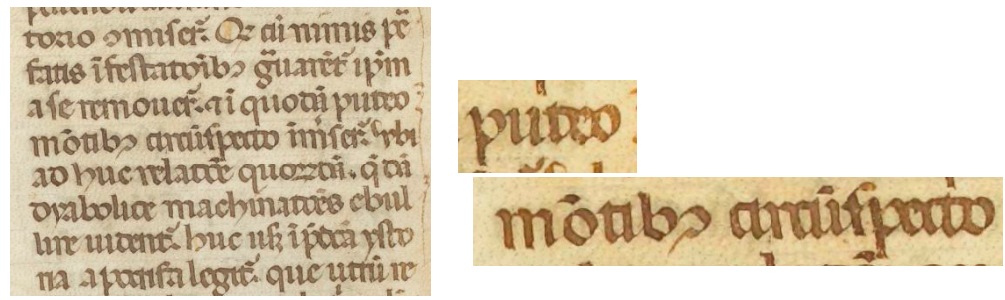 torio ↄmiſcꝛ̃. Qꝛ cũ nimis p̃
fatis ĩfeſtatoĩbꝫ g̃uarẽt̃ ip̃m
a ſe remouet̃. ⁊ ĩ quodã puteo
mõtibꝫ circũſpecto ĩmiſer̃ vbi
ad huc relatõe quorũdã. q̃dã
dyabolice machinatões ebul
lire uident̃. huc uſꝫ ĩ p̃dcã yſto
ria apocrifa legit̃. que utrũ re
puteo
mõtibꝫ circũſpecto